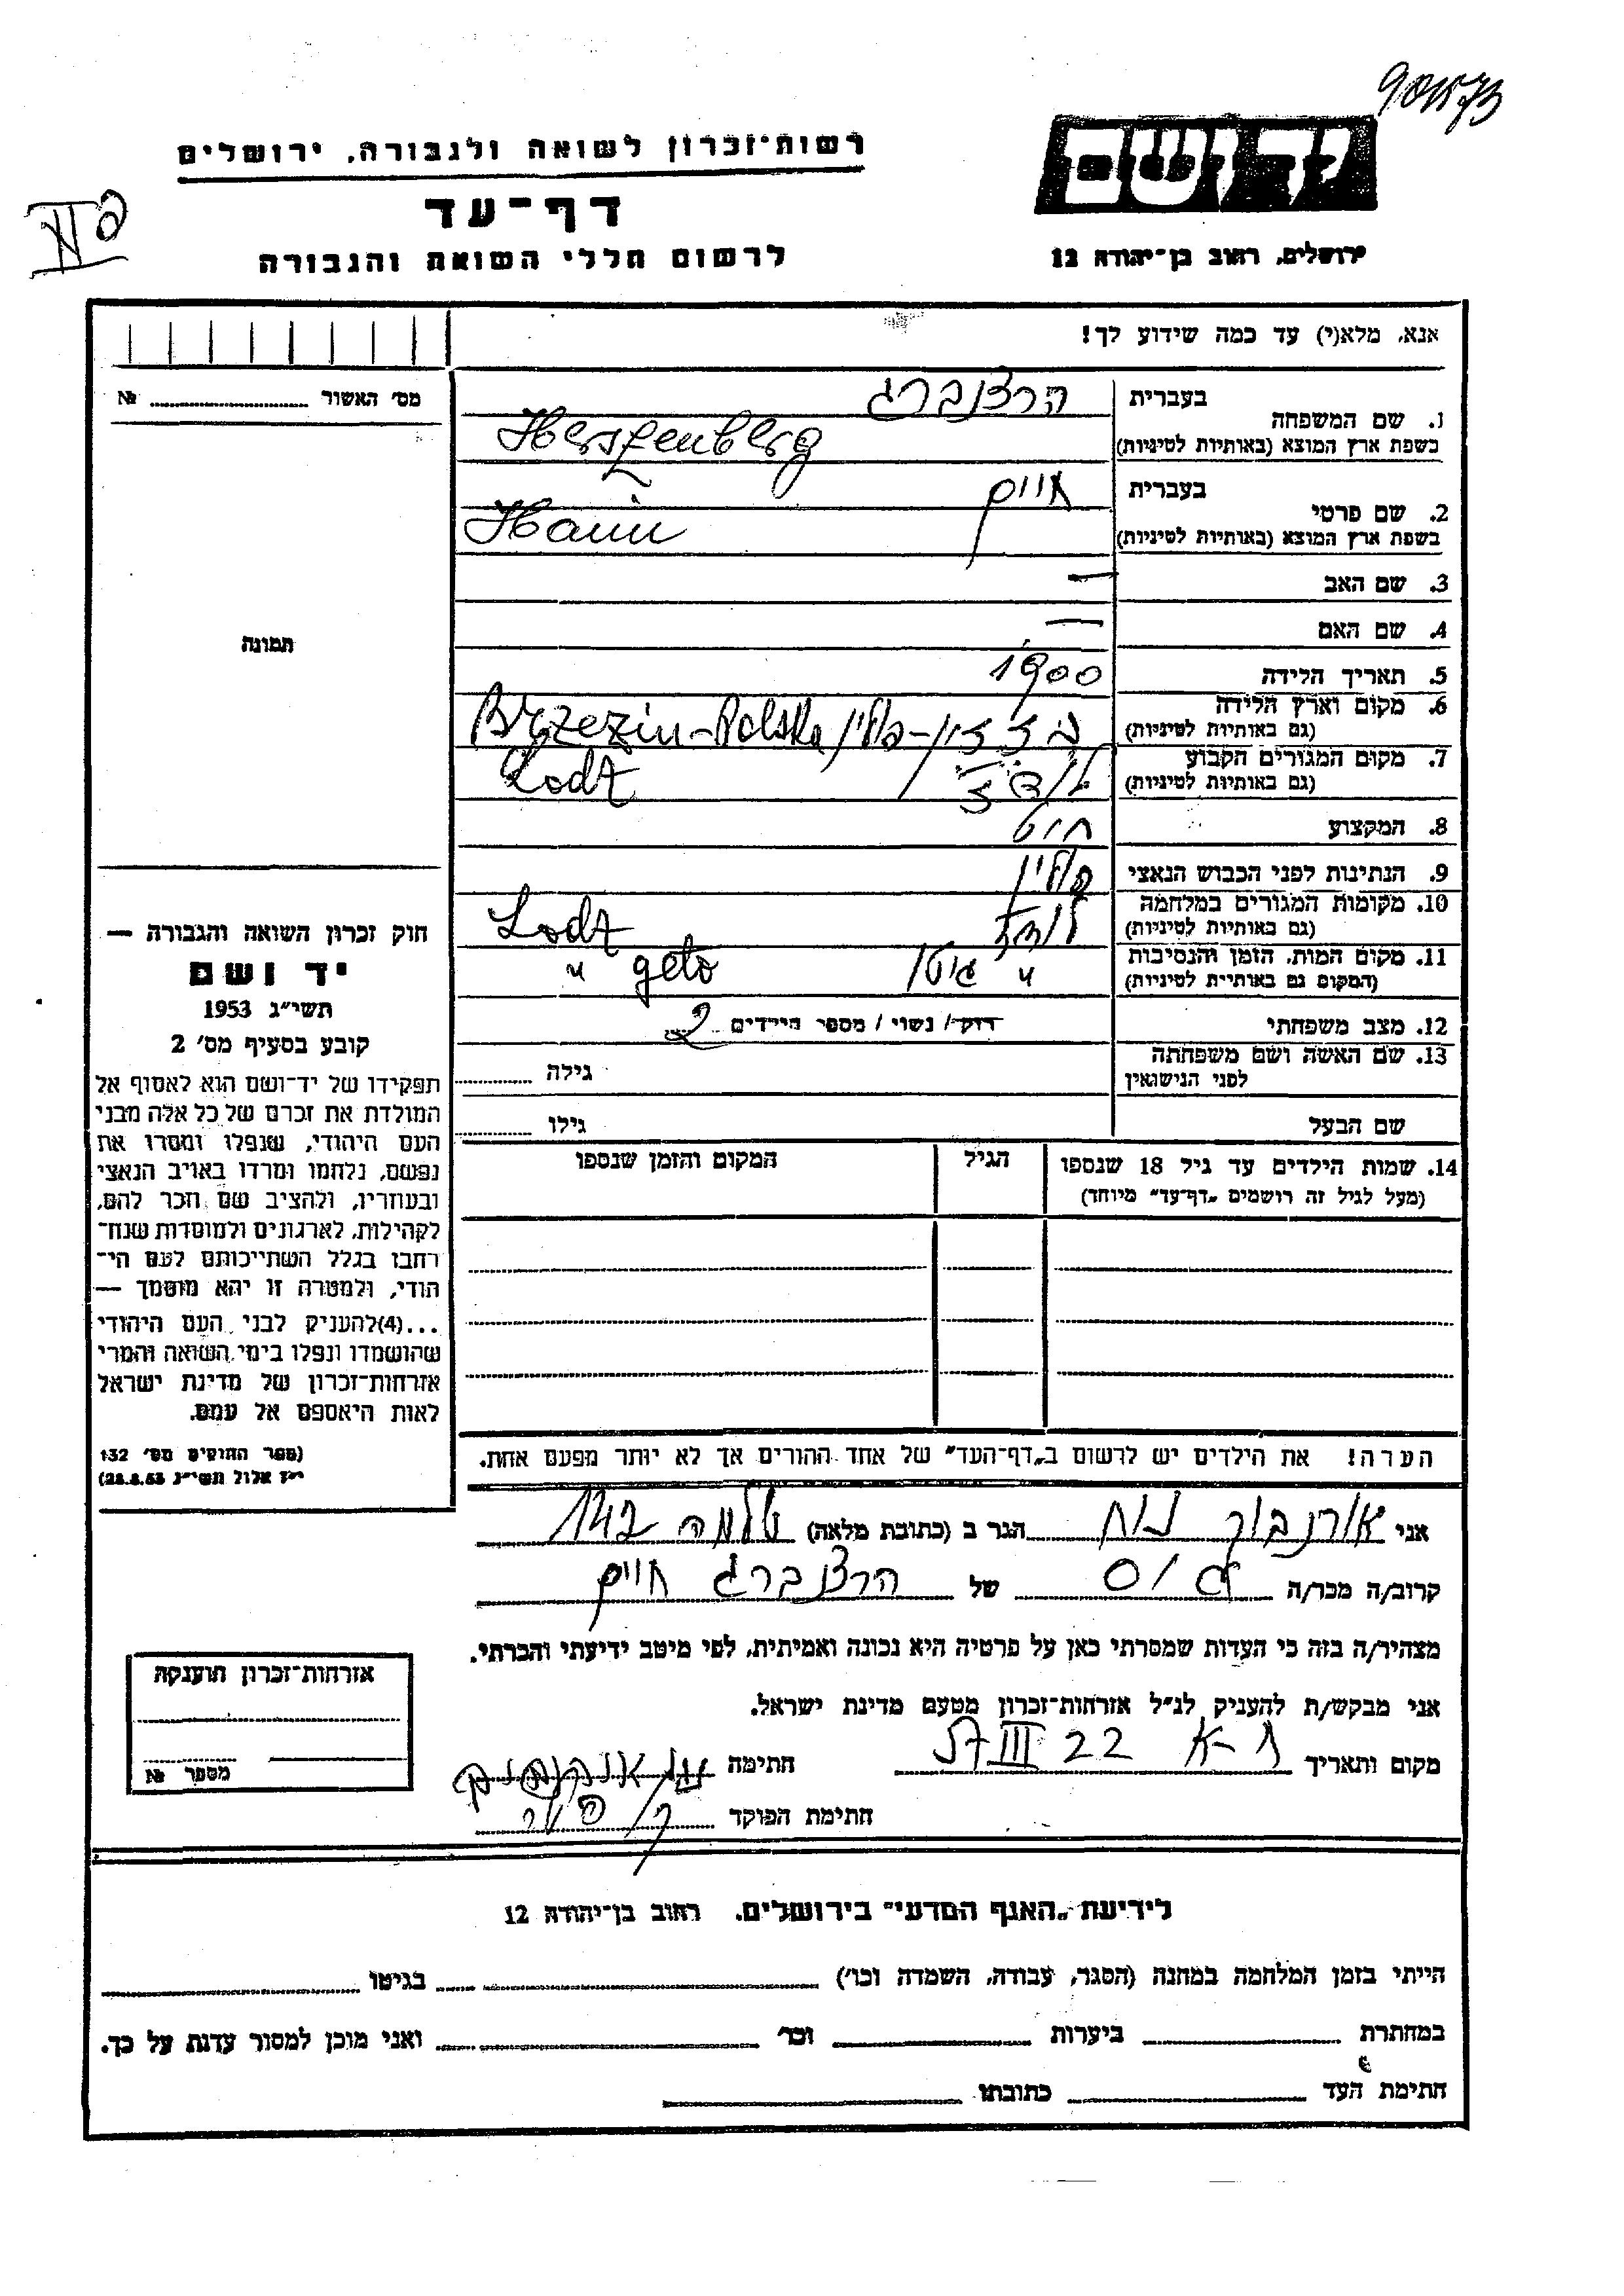 רשות־זכרון לשואה ולגבורה, ירושלים
דף־עד
לרשום חללי השואה והגבורה
יד ושם
ירושלים, רחוב בן־יהודה 12
אנא, מלא(י) עד כמה שידוע לך!
מס׳ האשור № 
1. שם המשפחה
בעברית הרצנברג
בשפת ארץ המוצא (באותיות לטיניות) Herszenberg
2. שם פרטי
בעברית חיים
בשפת ארץ המוצא (באותיות לטיניות) Haim
3. שם האב —
4. שם האם —
5. תאריך הלידה 1900
6. מקום וארץ הלידה
(גם באותיות לטיניות) Brzezin-Polska
7. מקום המגורים הקבוע
(גם באותיות לטיניות) לודז Lodz
8. המקצוע חיט
9. הנתינות לפני הכבוש הנאצי פולין
10. מקומות המגורים במלחמה
(גם באותיות לטיניות) לודז Lodz
11. מקום המות, הזמן והנסיבות
(המקום גם באותיות לטיניות) " גיטו " geto
12. מצב משפחתי רוק/ נשוי / מספר הילדים 2
13. שם האשה ושם משפחתה
לפני הנישואין גילה
שם הבעל גילו
14. שמות הילדים עד גיל 18 שנספו
(מעל לגיל זה רושמים „דף־עד״ מיוחד)
הגיל
המקום והזמן שנספו
הערה! את הילדים יש לרשום ב„דף־העד״ של אחד ההורים אך לא יותר מפעם אחת.
תמונה
חוק זכרון השואה והגבורה —
יד ושם
תשי״ג 1953
קובע בסעיף מס׳ 2
תפקידו של יד־ושם הוא לאסוף אל
המולדת את זכרם של כל אלה מבני
העם היהודי, שנפלו ומסרו את
נפשם, נלחמו ומרדו באויב הנאצי
ובעוזריו, ולהציב שם וזכר להם,
לקהילות, לארגונים ולמוסדות שנח־
רחבו בגלל השתייכותם לעם הי־
הודי, ולמטרה זו יהא מוסמך —
...(4)להעניק לבני העם היהודי
שהושמדו ונפלו בימי השואה והמרי
אזרחות־זכרון של מדינת ישראל
לאות היאספם אל עמם.
(ספר החוקים מס׳ 132
י״ז אלול תשי״ג 28.8.53)
אני אורנבוך נוח הגר ב (כתובת מלאה) שלמה 142
קרוב/ה מכר/ה גיס של הרצנברג חיים
מצהיר/ה בזה כי העדות שמסרתי כאן על פרטיה היא נכונה ואמיתית, לפי מיטב ידיעתי והכרתי.
אני מבקש/ת להעניק לנ״ל אזרחות־זכרון מטעם מדינת ישראל.
מקום ותאריך ת-א 22 III 57 חתימה
חתימת הפוקד
אזרחות־זכרון הוענקה
מספר №
לידיעת „האגף המדעי״ בירושלים, רחוב בן־יהודה 12
הייתי בזמן המלחמה במחנה (הסגר, עבודה, השמדה וכו׳) בגיטו
במחתרת ביערות וכו׳ ואני מוכן למסור עדות על כך.
חתימת העד כתובתו